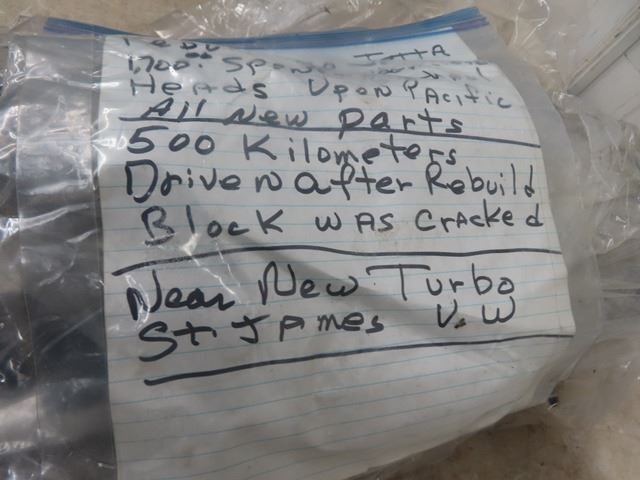 Heads Upon Pacific
All New Parts
500 Kilometers
Driven after Rebuild
Block was cracked
Near New Turbo
St. James V.W